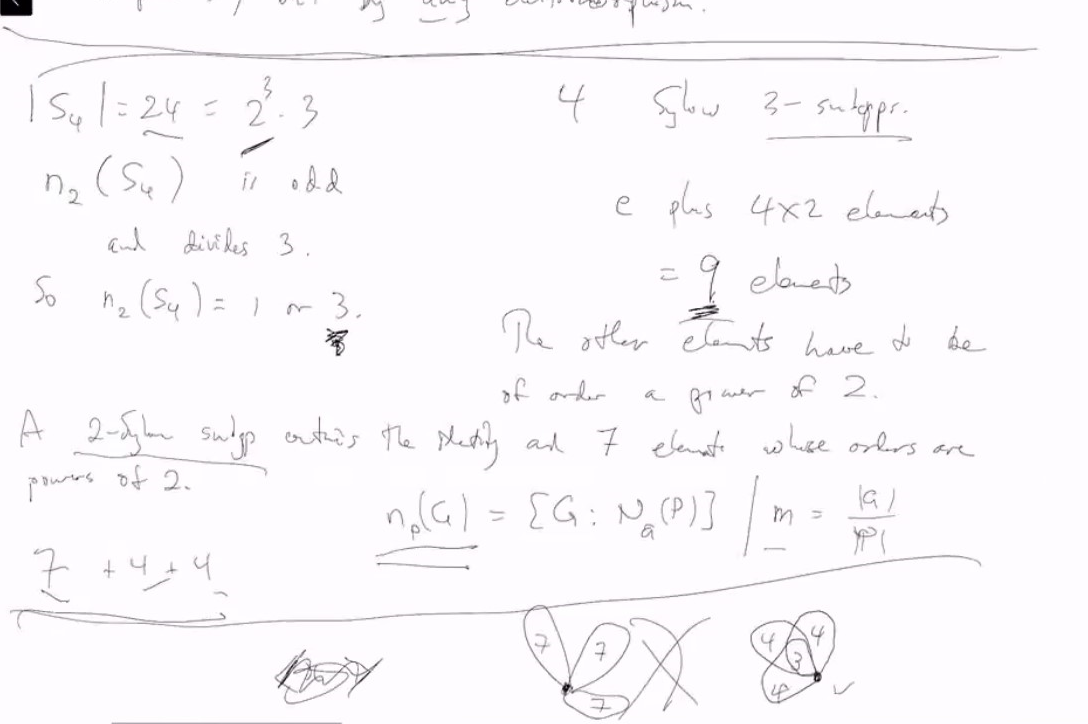 by any automorphism.
|S₄| = 24 = 2³·3
n₂(S₄) is odd
and divides 3.
So n₂(S₄) = 1 or 3.
4 Sylow 3-subgps.
e plus 4×2 elements
= 9 elements
The other elements have to be
of order a power of 2.
A 2-Sylow subgp contains the identity and 7 elements whose orders are
powers of 2.
n_p(G) = [G : N_G(P)] | m = |G|/|P|
7 + 4 + 4
7 7 7
4 4 3 4 ✓